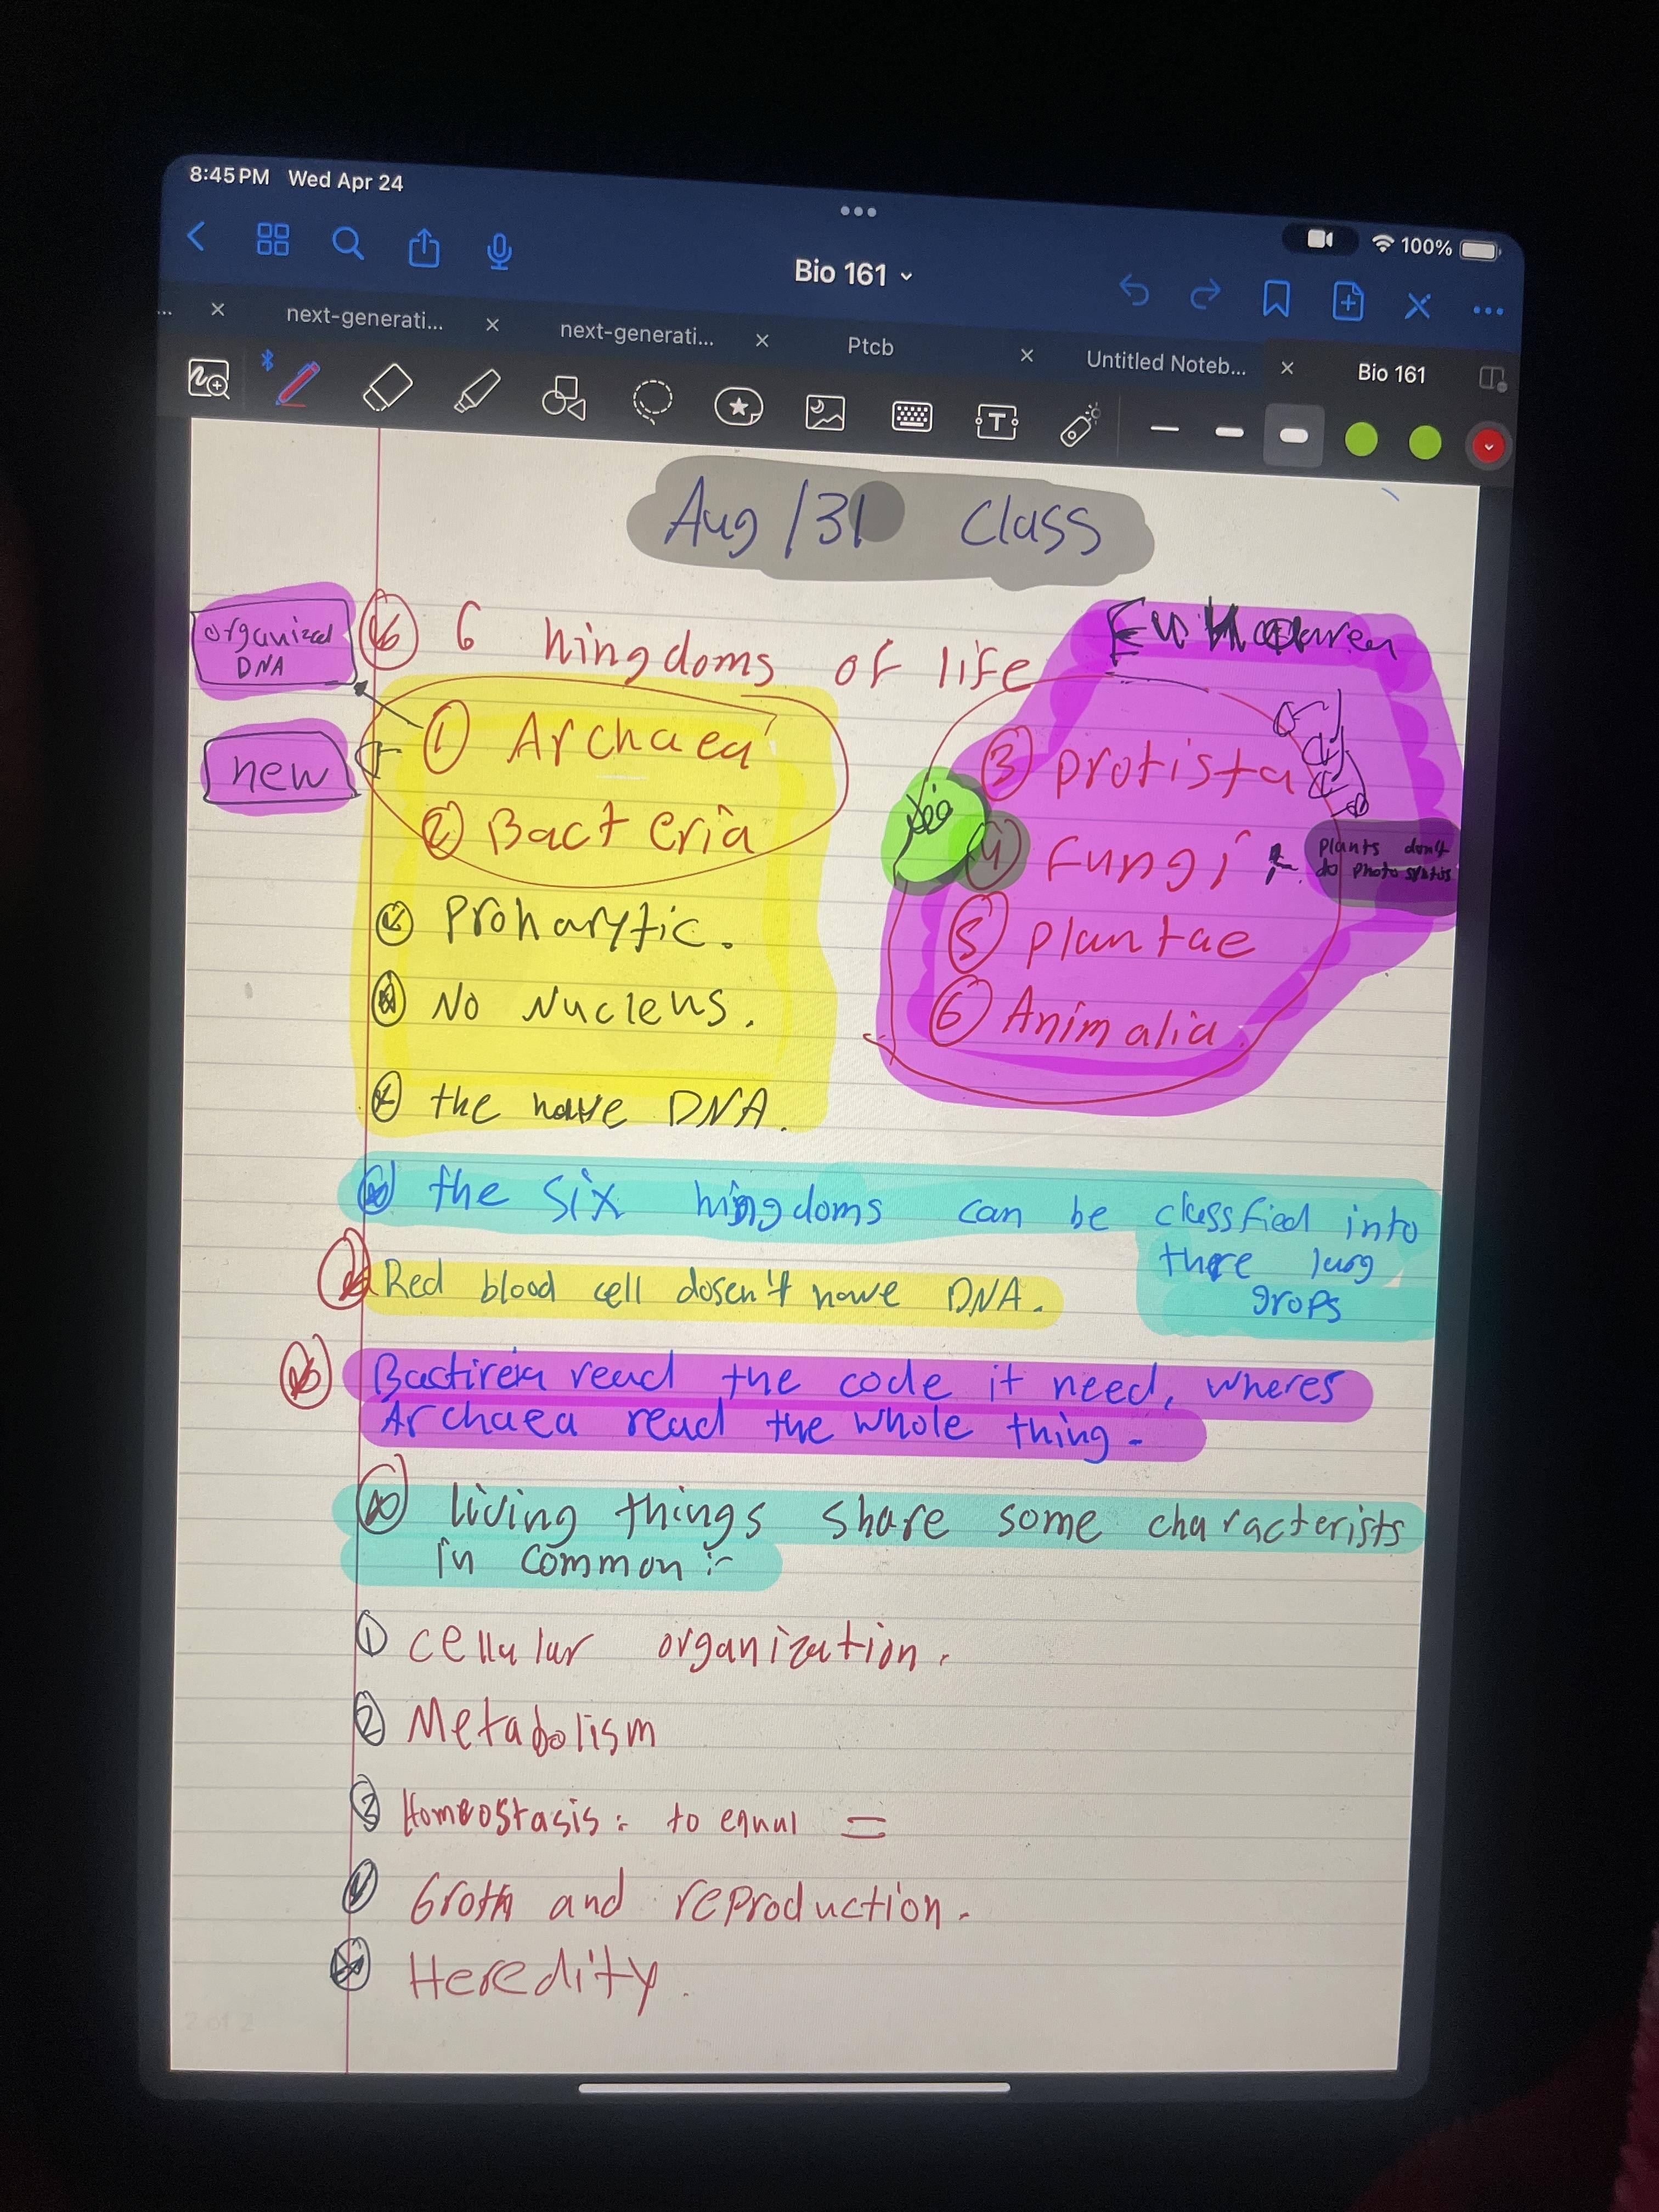 8:45 PM Wed Apr 24
100%
Bio 161
...
next-generati...
next-generati...
Ptcb
Untitled Noteb...
Bio 161
T
Aug/31 Class
organized
DNA
6 kingdoms of life
new
① Archaea
② Bacteria
Prokarytic.
No Nucleus.
the have DNA.
③ protista
④ Fungi
plants don't
do photo
⑤ plantae
⑥ Animalia
the six kingdoms can be classfied into
there larg
grops
Red blood cell dosen't have DNA.
Bactireia read the code it need, wheres
Archaea read the whole thing-
living things share some characterists
in common:-
① cellular organization.
② Metabolism
③ Homeostasis: to equal =
④ Groth and reproduction.
Heredity.
2 of 2